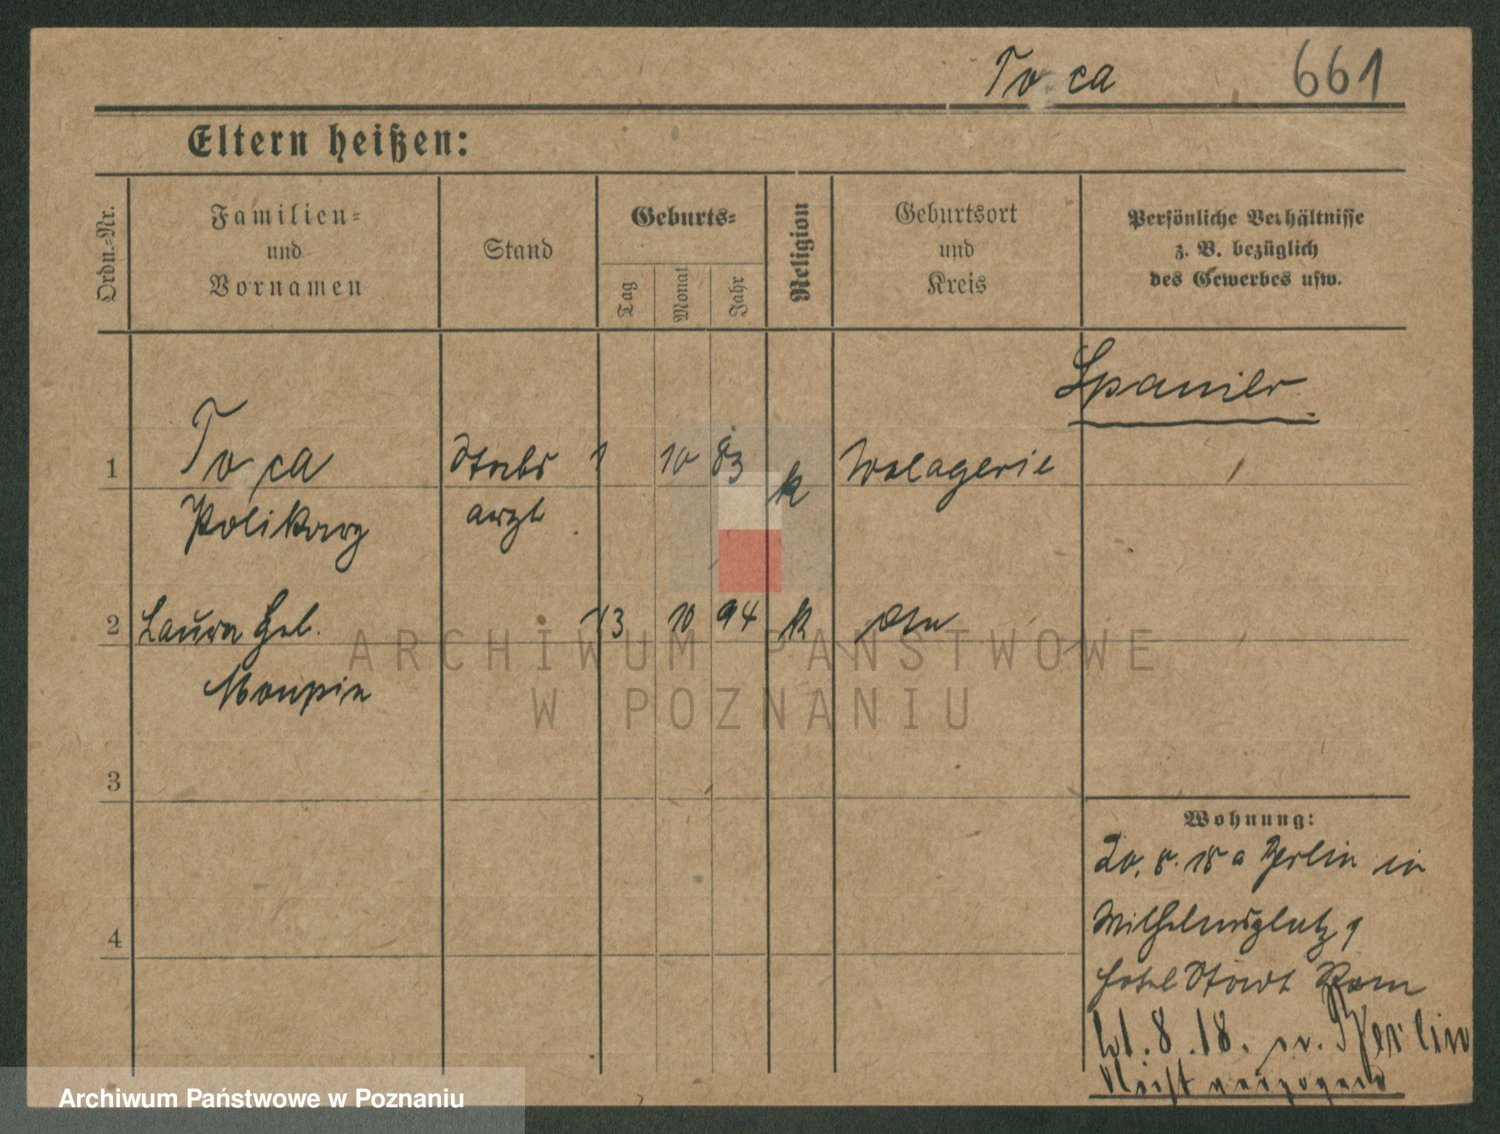 To ca 661
Eltern heißen:
Ordn.=Nr.
Familien=
und
Vornamen
Stand
Geburts=
Tag
Monat
Jahr
Religion
Geburtsort
und
Kreis
Persönliche Verhältnisse
z. B. bezüglich
des Gewerbes usw.
Spanier
1 To ca Stabs 1 10 83 k
Polikarp arzt
2 Laura geb. 13 10 94 k
Moupin
3
4
Wohnung:
20. 8. 18 a Berlin in
Wilhelmsplatz 1
Hotel Stadt Rom
21. 8. 18. n. Berlin
verzogen
ARCHIWUM PAŃSTWOWE
W POZNANIU
Archiwum Państwowe w Poznaniu